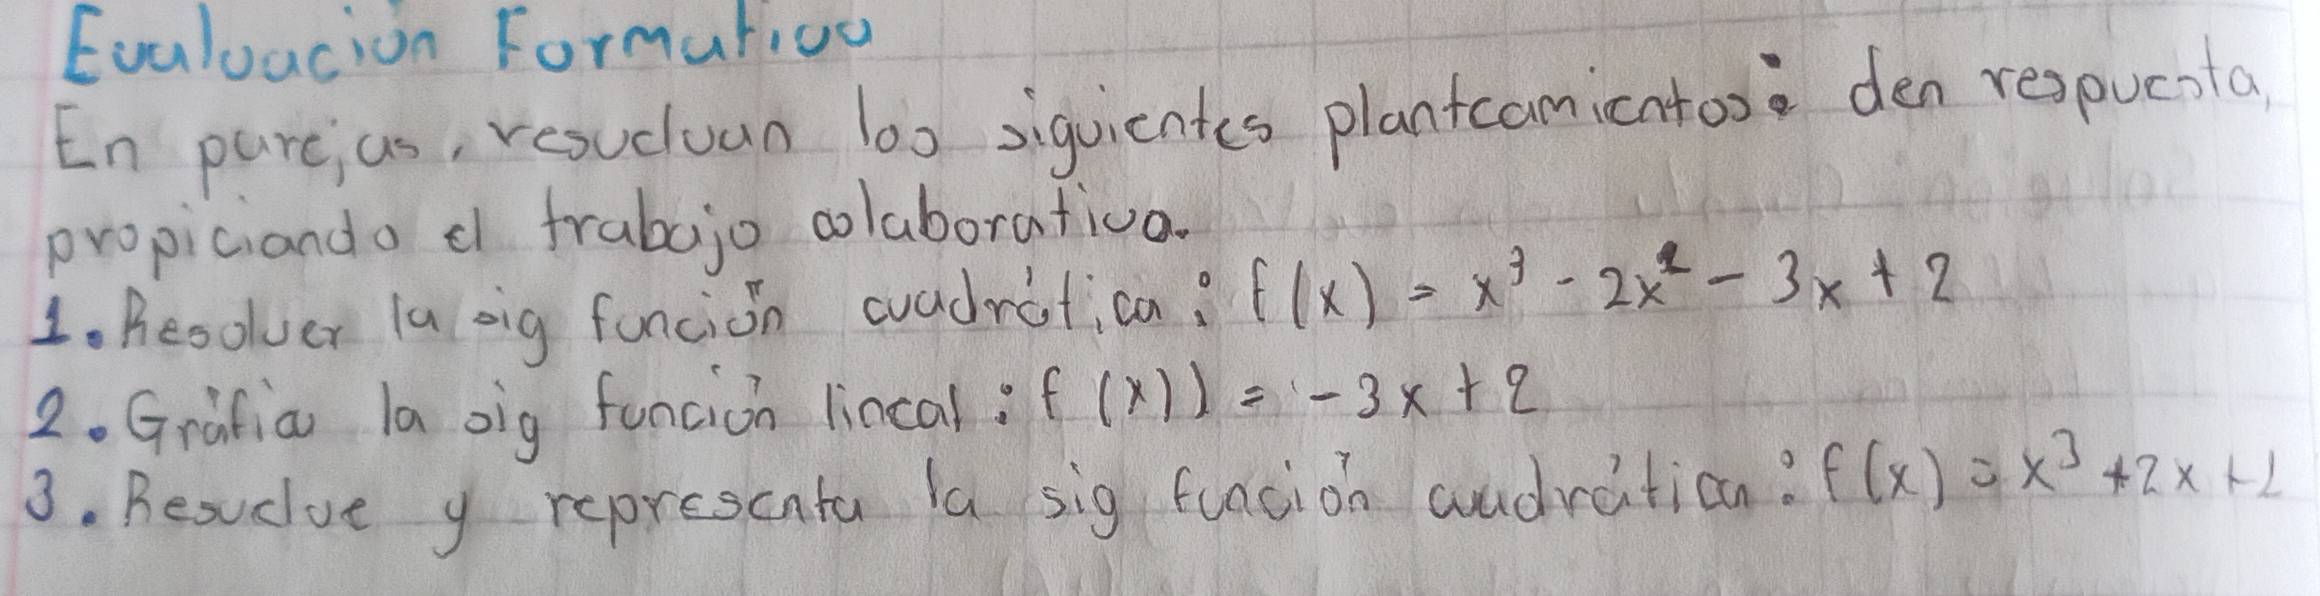 Evaluación Formativa
En parejas, resuelvan los siguientes planteamientos: den respuesta,
propiciando el trabajo colaborativa.
1. Resolver la sig función cuadrática: f(x) = x³ - 2x² - 3x + 2
2. Gráfica la sig función lineal: f (x)) = -3x + 2
3. Resuelve y representa la sig función cuadrática: f(x) = x³ + 2x + 1